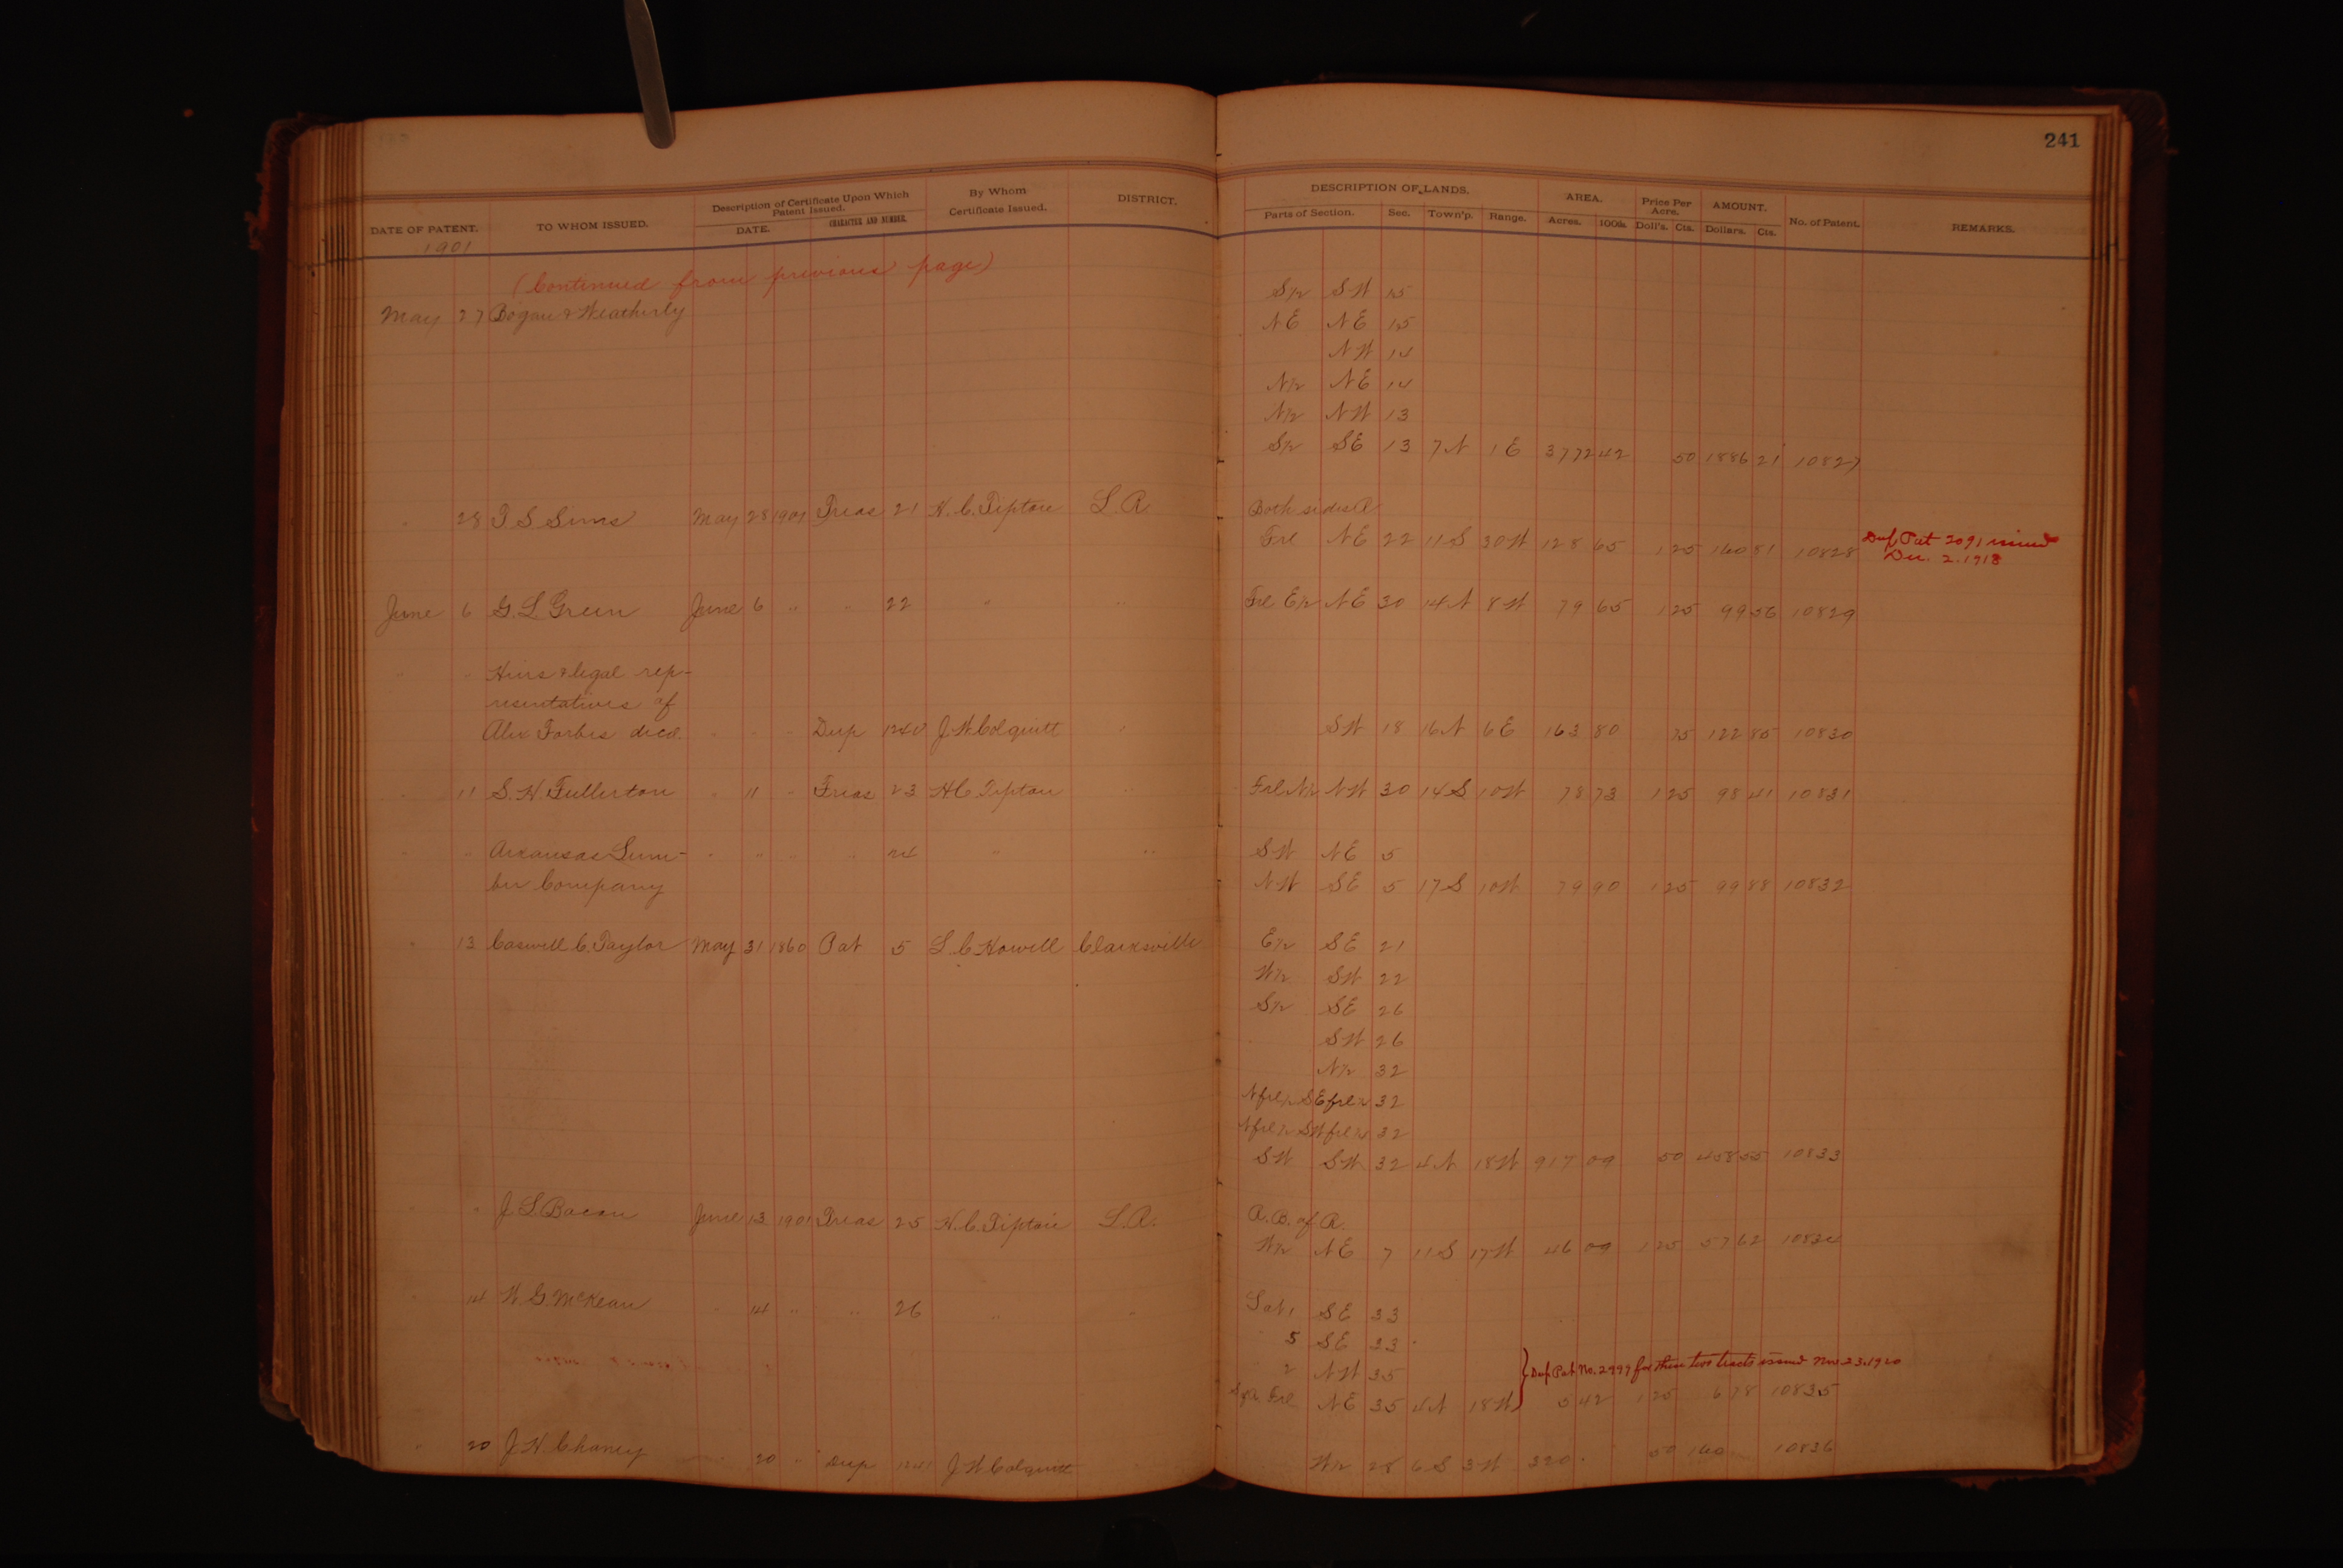 241
DATE OF PATENT. TO WHOM ISSUED. Description of Certificate Upon Which Patent Issued. DATE. CHARACTER AND NUMBER. By Whom Certificate Issued. DISTRICT. DESCRIPTION OF LANDS. Parts of Section. Sec. Town'p. Range. AREA. Acres. 100th. Price Per Acre. Doll's. Cts. AMOUNT. Dollars. Cts. No. of Patent. REMARKS.
1901
(Continued from previous page)
S½ SW 15
May 27 Bogan & Weatherly NE NE 15
NW 14
N½ NE 14
N½ NW 13
S½ SE 13 7N 1E 3772 42 50 1886 21 10827
" 28 T S Sims May 28 1901 Treas 21 H. C. Tipton L. R Both sides R
Frl NE 22 11S 30W 128 65 1 25 160 81 10828 Dup Pat 2091 issued
Dec. 2. 1918
June 6 G. L. Green June 6 " " 22 " " Frl E½ NE 30 14N 8W 79 65 1 25 99 56 10829
" " Heirs & legal rep-
resentatives of
Alex Forbes decd. " " " Dup 1240 J. W. Colquitt " SW 18 16N 6E 163 80 75 122 85 10830
" 11 S. H. Fullerton " 11 " Treas 23 H C. Tipton " Frl N½ NW 30 14S 10W 78 73 1 25 98 41 10831
" " Arkansas Lum- " " " " 24 " " SW NE 5
ber Company NW SE 5 17S 10W 79 90 1 25 99 88 10832
" 13 Caswell C. Taylor May 31 1860 Pat 5 L. C. Howell Clarksville E½ SE 21
W½ SW 22
S½ SE 26
SW 26
N½ 32
N frl ½ SE frl ¼ 32
N frl ½ SW frl ¼ 32
SW SW 32 4N 18W 917 09 50 458 55 10833
" " J. L. Bacon June 13 1901 Treas 25 H. C. Tipton L. R. A. B. of R.
W½ NE 7 11S 17W 46 09 1 25 57 62 10834
" 14 W. G. McKean " 14 " " 26 " " Lot 1 SE 33
5 SE 33
2 NW 35 } Dup Pat No. 2997 for these two tracts issued Nov 23. 1920
Frl NE 35 4N 18W 5 42 1 25 6 78 10835
" 20 J. H. Chaney " 20 " Dup 1241 J W Colquitt W½ 28 6S 3W 320 50 160 10836